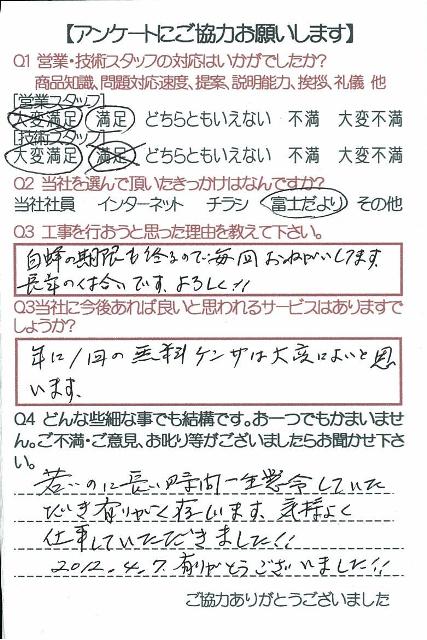 【アンケートにご協力お願いします】
Q1 営業・技術スタッフの対応はいかがでしたか?
商品知識、問題対応速度、提案、説明能力、挨拶、礼儀 他
[営業スタッフ]
大変満足 満足 どちらともいえない 不満 大変不満
[技術スタッフ]
大変満足 満足 どちらともいえない 不満 大変不満
Q2 当社を選んで頂いたきっかけはなんですか?
当社社員 インターネット チラシ 富士だより その他
Q3 工事を行おうと思った理由を教えて下さい。
白蟻の期限も終るので毎回おねがいしてます
長年の付合いです、よろしく!!
Q3当社に今後あれば良いと思われるサービスはありますで
しょうか?
年に1回の無料ケンサは大変によいと思
います、
Q4 どんな些細な事でも結構です。お一つでもかまいませ
ん。ご不満・ご意見、お叱り等がございましたらお聞かせ下さ
い。
若いのに長い時間一生懸命していた
だき有りがたく存じます、気持よく
仕事していただきました!!
2012.4.7. 有りがとうございました!!
ご協力ありがとうございました